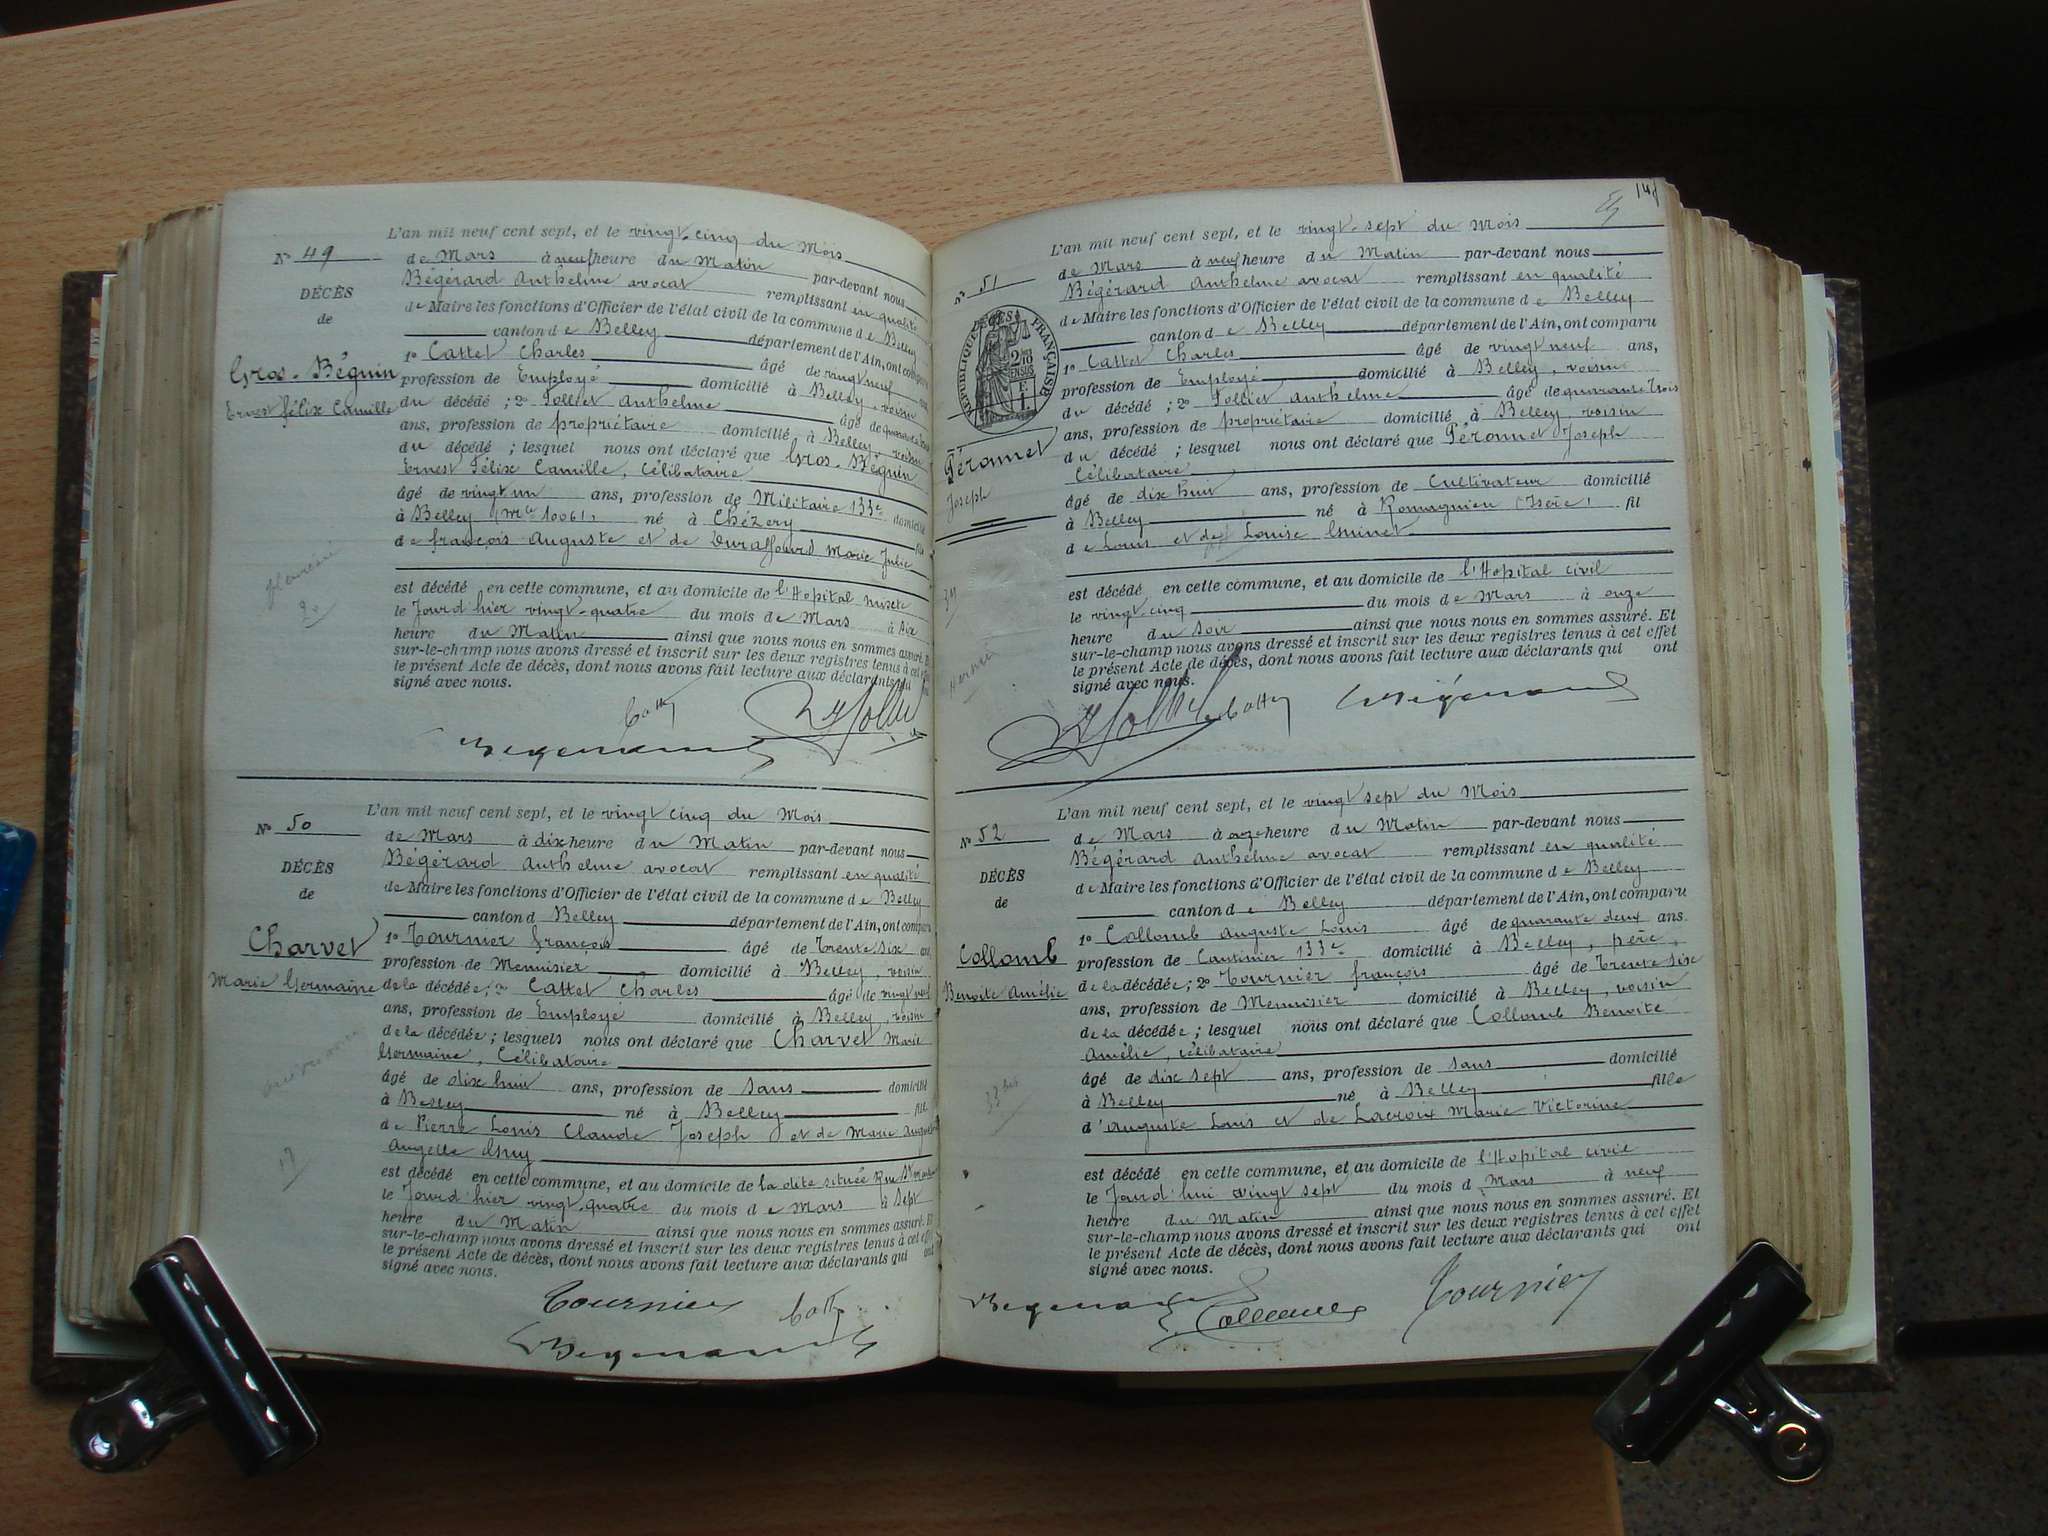 L'an mil neuf cent sept, et le vingt-cinq du Mois
N° 49
de Mars à neuf heure du Matin par-devant nous
DÉCÈS
Bégérard Anthelme avocat remplissant en qualité
de
de Maire les fonctions d'Officier de l'état civil de la commune de Belley
canton de Belley département de l'Ain, ont comparu
Gros-Béguin
1° Cattet Charles âgé de vingt neuf ans,
Ernest félix Camille
profession de Employé domicilié à Belley, voisin
du décédé ; 2° Jolliet Anthelme âgé de quarante trois
ans, profession de propriétaire domicilié à Belley, voisin
du décédé ; lesquel nous ont déclaré que Gros-Béguin
Ernest Félix Camille, Célibataire
âgé de vingt un ans, profession de Militaire 133e domicilié
à Belley (Mle 10061) né à Chézery fils
de françois Auguste et de Duraffourd Marie Julie
est décédé en cette commune, et au domicile de l'Hopital mixte
le Jourd'hier vingt-quatre du mois de Mars à dix
heure du Matin ainsi que nous nous en sommes assuré. Et
sur-le-champ nous avons dressé et inscrit sur les deux registres tenus à cet effet
le présent Acte de décès, dont nous avons fait lecture aux déclarants qui ont
signé avec nous.
L'an mil neuf cent sept, et le vingt cinq du Mois
N° 50
de Mars à dix heure du Matin par-devant nous
DÉCÈS
Bégérard Anthelme avocat remplissant en qualité
de
de Maire les fonctions d'Officier de l'état civil de la commune de Belley
canton d Belley département de l'Ain, ont comparu
Charvet
1° Tournier françois âgé de Trente six ans,
Marie Germaine
profession de Menuisier domicilié à Belley, voisin
de la décédée ; 2° Cattet Charles âgé de vingt neuf
ans, profession de Employé domicilié à Belley, voisin
de la décédée ; lesquels nous ont déclaré que Charvet Marie
Germaine, Célibataire
âgé de dix huit ans, profession de sans domicilié
à Belley né à Belley fille
de Pierre Louis Claude Joseph et de Marie
Angelle
est décédé en cette commune, et au domicile de la dite située Rue
le Jourd'hier vingt-quatre du mois de Mars à sept
heure du Matin ainsi que nous nous en sommes assuré. Et
sur-le-champ nous avons dressé et inscrit sur les deux registres tenus à cet effet
le présent Acte de décès, dont nous avons fait lecture aux déclarants qui ont
signé avec nous.
Tournier
L'an mil neuf cent sept, et le vingt-sept du Mois
N° 51
de Mars à neuf heure du Matin par-devant nous
Bégérard Anthelme avocat remplissant en qualité
DÉCÈS
de Maire les fonctions d'Officier de l'état civil de la commune de Belley
RÉPUBLIQUE FRANÇAISE
canton de Belley département de l'Ain, ont comparu
1° Cattet Charles âgé de vingt neuf ans,
profession de Employé domicilié à Belley, voisin
du décédé ; 2° Jolliet Anthelme âgé de quarante trois
ans, profession de propriétaire domicilié à Belley, voisin
Péronnet
Joseph
du décédé ; lesquel nous ont déclaré que Péronnet Joseph
Célibataire
âgé de dix huit ans, profession de Cultivateur domicilié
à Belley né à Romagnieu (Isère) fil
de Louis et de Louise Guinet
est décédé en cette commune, et au domicile de l'Hopital civil
le vingt-cinq du mois de Mars à onze
heure du soir ainsi que nous nous en sommes assuré. Et
sur-le-champ nous avons dressé et inscrit sur les deux registres tenus à cet effet
le présent Acte de décès, dont nous avons fait lecture aux déclarants qui ont
signé avec nous.
L'an mil neuf cent sept, et le vingt sept du Mois
N° 52
de Mars à onze heure du Matin par-devant nous
DÉCÈS
Bégérard Anthelme avocat remplissant en qualité
de
de Maire les fonctions d'Officier de l'état civil de la commune de Belley
canton de Belley département de l'Ain, ont comparu
Collomb
1° Collomb Auguste Louis âgé de quarante deux ans.
Benoite Amélie
profession de Cantinier 133e domicilié à Belley, père,
de la décédée ; 2° Tournier françois âgé de Trente six
ans, profession de Menuisier domicilié à Belley, voisin
de la décédée ; lesquel nous ont déclaré que Collomb Benoite
Amélie, célibataire
âgé de dix sept ans, profession de sans domicilié
à Belley né à Belley fille
d'Auguste Louis et de Lacroix Marie Victorine
est décédé en cette commune, et au domicile de l'Hopital civil
le Jourd'hui vingt sept du mois d Mars à neuf
heure du Matin ainsi que nous nous en sommes assuré. Et
sur-le-champ nous avons dressé et inscrit sur les deux registres tenus à cet effet
le présent Acte de décès, dont nous avons fait lecture aux déclarants qui ont
signé avec nous.
Tournier